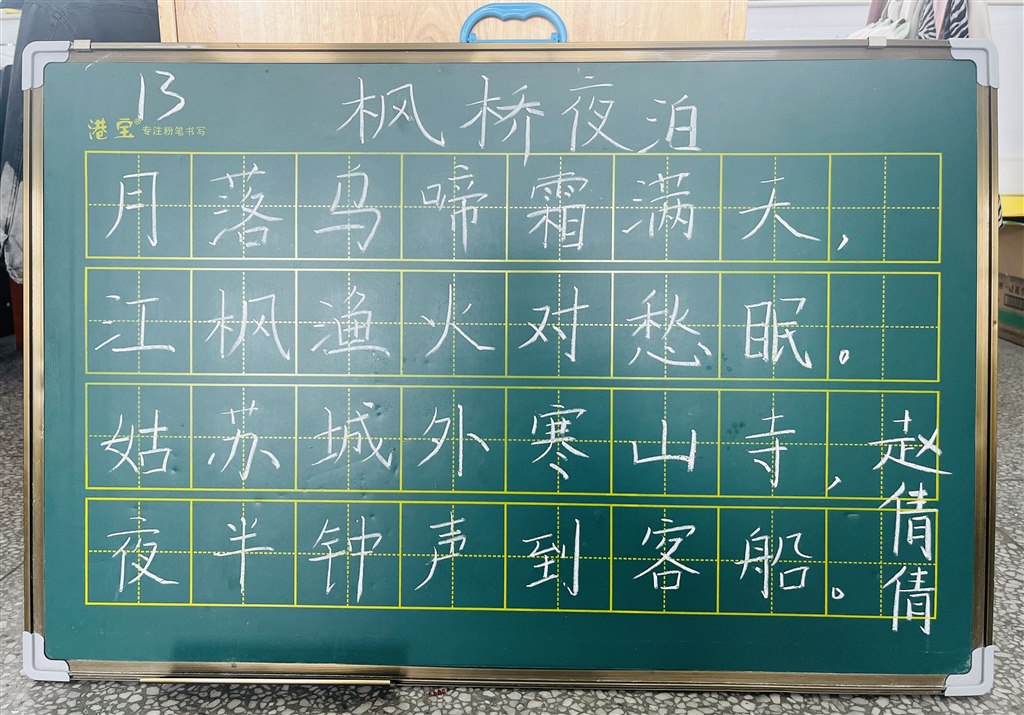 13
枫桥夜泊
港宝® 专注粉笔书写
月落鸟啼霜满天，
江枫渔火对愁眠。
姑苏城外寒山寺，
夜半钟声到客船。
赵倩倩